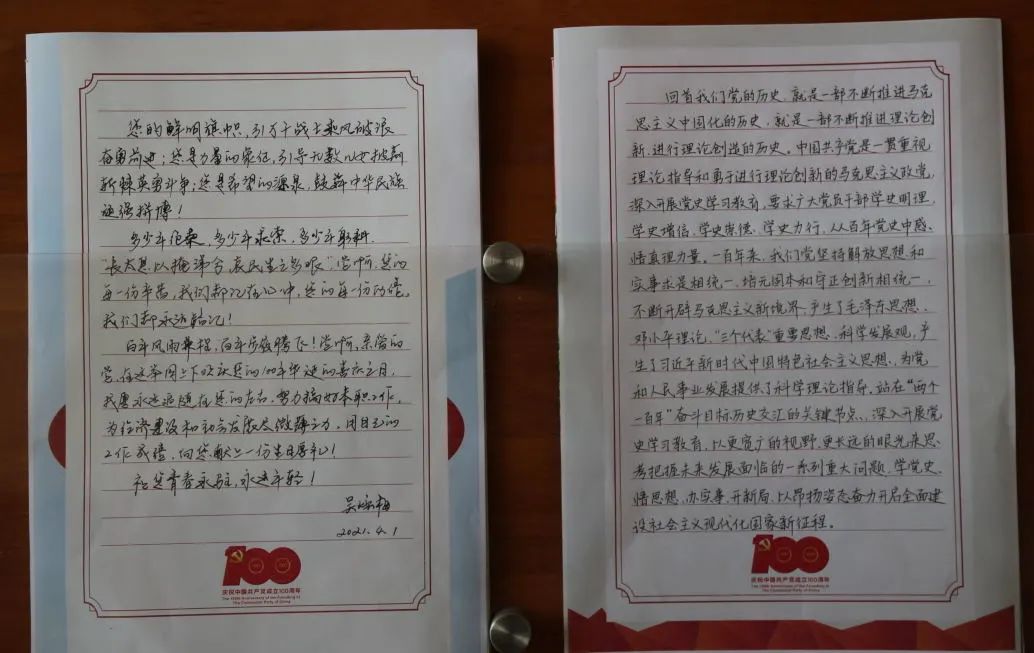 您的鲜明旗帜，引万千战士乘风破浪
奋勇前进；您是力量的象征，引导无数儿女披荆
斩棘英勇斗争；您是希望的源泉，鼓舞中华民族
顽强拼搏！
多少年探索，多少年求索，多少年耕耘
"长太息以掩涕兮哀民生之多艰"，党啊，您的
每一份辛苦，我们都记在心中，您的每一份功绩，
我们都永远铭记！
百年风雨兼程，百年历史腾飞！党啊，亲爱的
党，在这举国上下欢庆您的100年华诞的喜庆之月，
我愿永远追随在您的左右，努力搞好本职工作，
为经济建设和社会发展尽微薄之力，用自己的
工作成绩，向您献上一份生日厚礼！
祝您青春永驻，永远年轻！
吴
2021.4.1
100
庆祝中国共产党成立100周年
The 100th Anniversary of the Founding of
The Communist Party of China
回首我们党的历史，就是一部不断推进马克
思主义中国化的历史，就是一部不断推进理论创
新、进行理论创造的历史。中国共产党是一贯重视
理论指导和勇于进行理论创新的马克思主义政党，
深入开展党史学习教育，要求广大党员干部学史明理、
学史增信、学史崇德、学史力行，从百年党史中感
悟真理力量。一百年来，我们党坚持解放思想和
实事求是相统一、培元固本和守正创新相统一，
不断开辟马克思主义新境界，产生了毛泽东思想、
邓小平理论、"三个代表"重要思想、科学发展观，产
生了习近平新时代中国特色社会主义思想，为党
和人民事业发展提供了科学理论指导，站在"两个
一百年"奋斗目标历史交汇的关键节点，深入开展党
史学习教育，以更宽广的视野、更长远的眼光来思
考把握未来发展面临的一系列重大问题，学党史、
悟思想、办实事、开新局，以昂扬姿态奋力开启全面建
设社会主义现代化国家新征程。
100
庆祝中国共产党成立100周年
The 100th Anniversary of the Founding of
The Communist Party of China